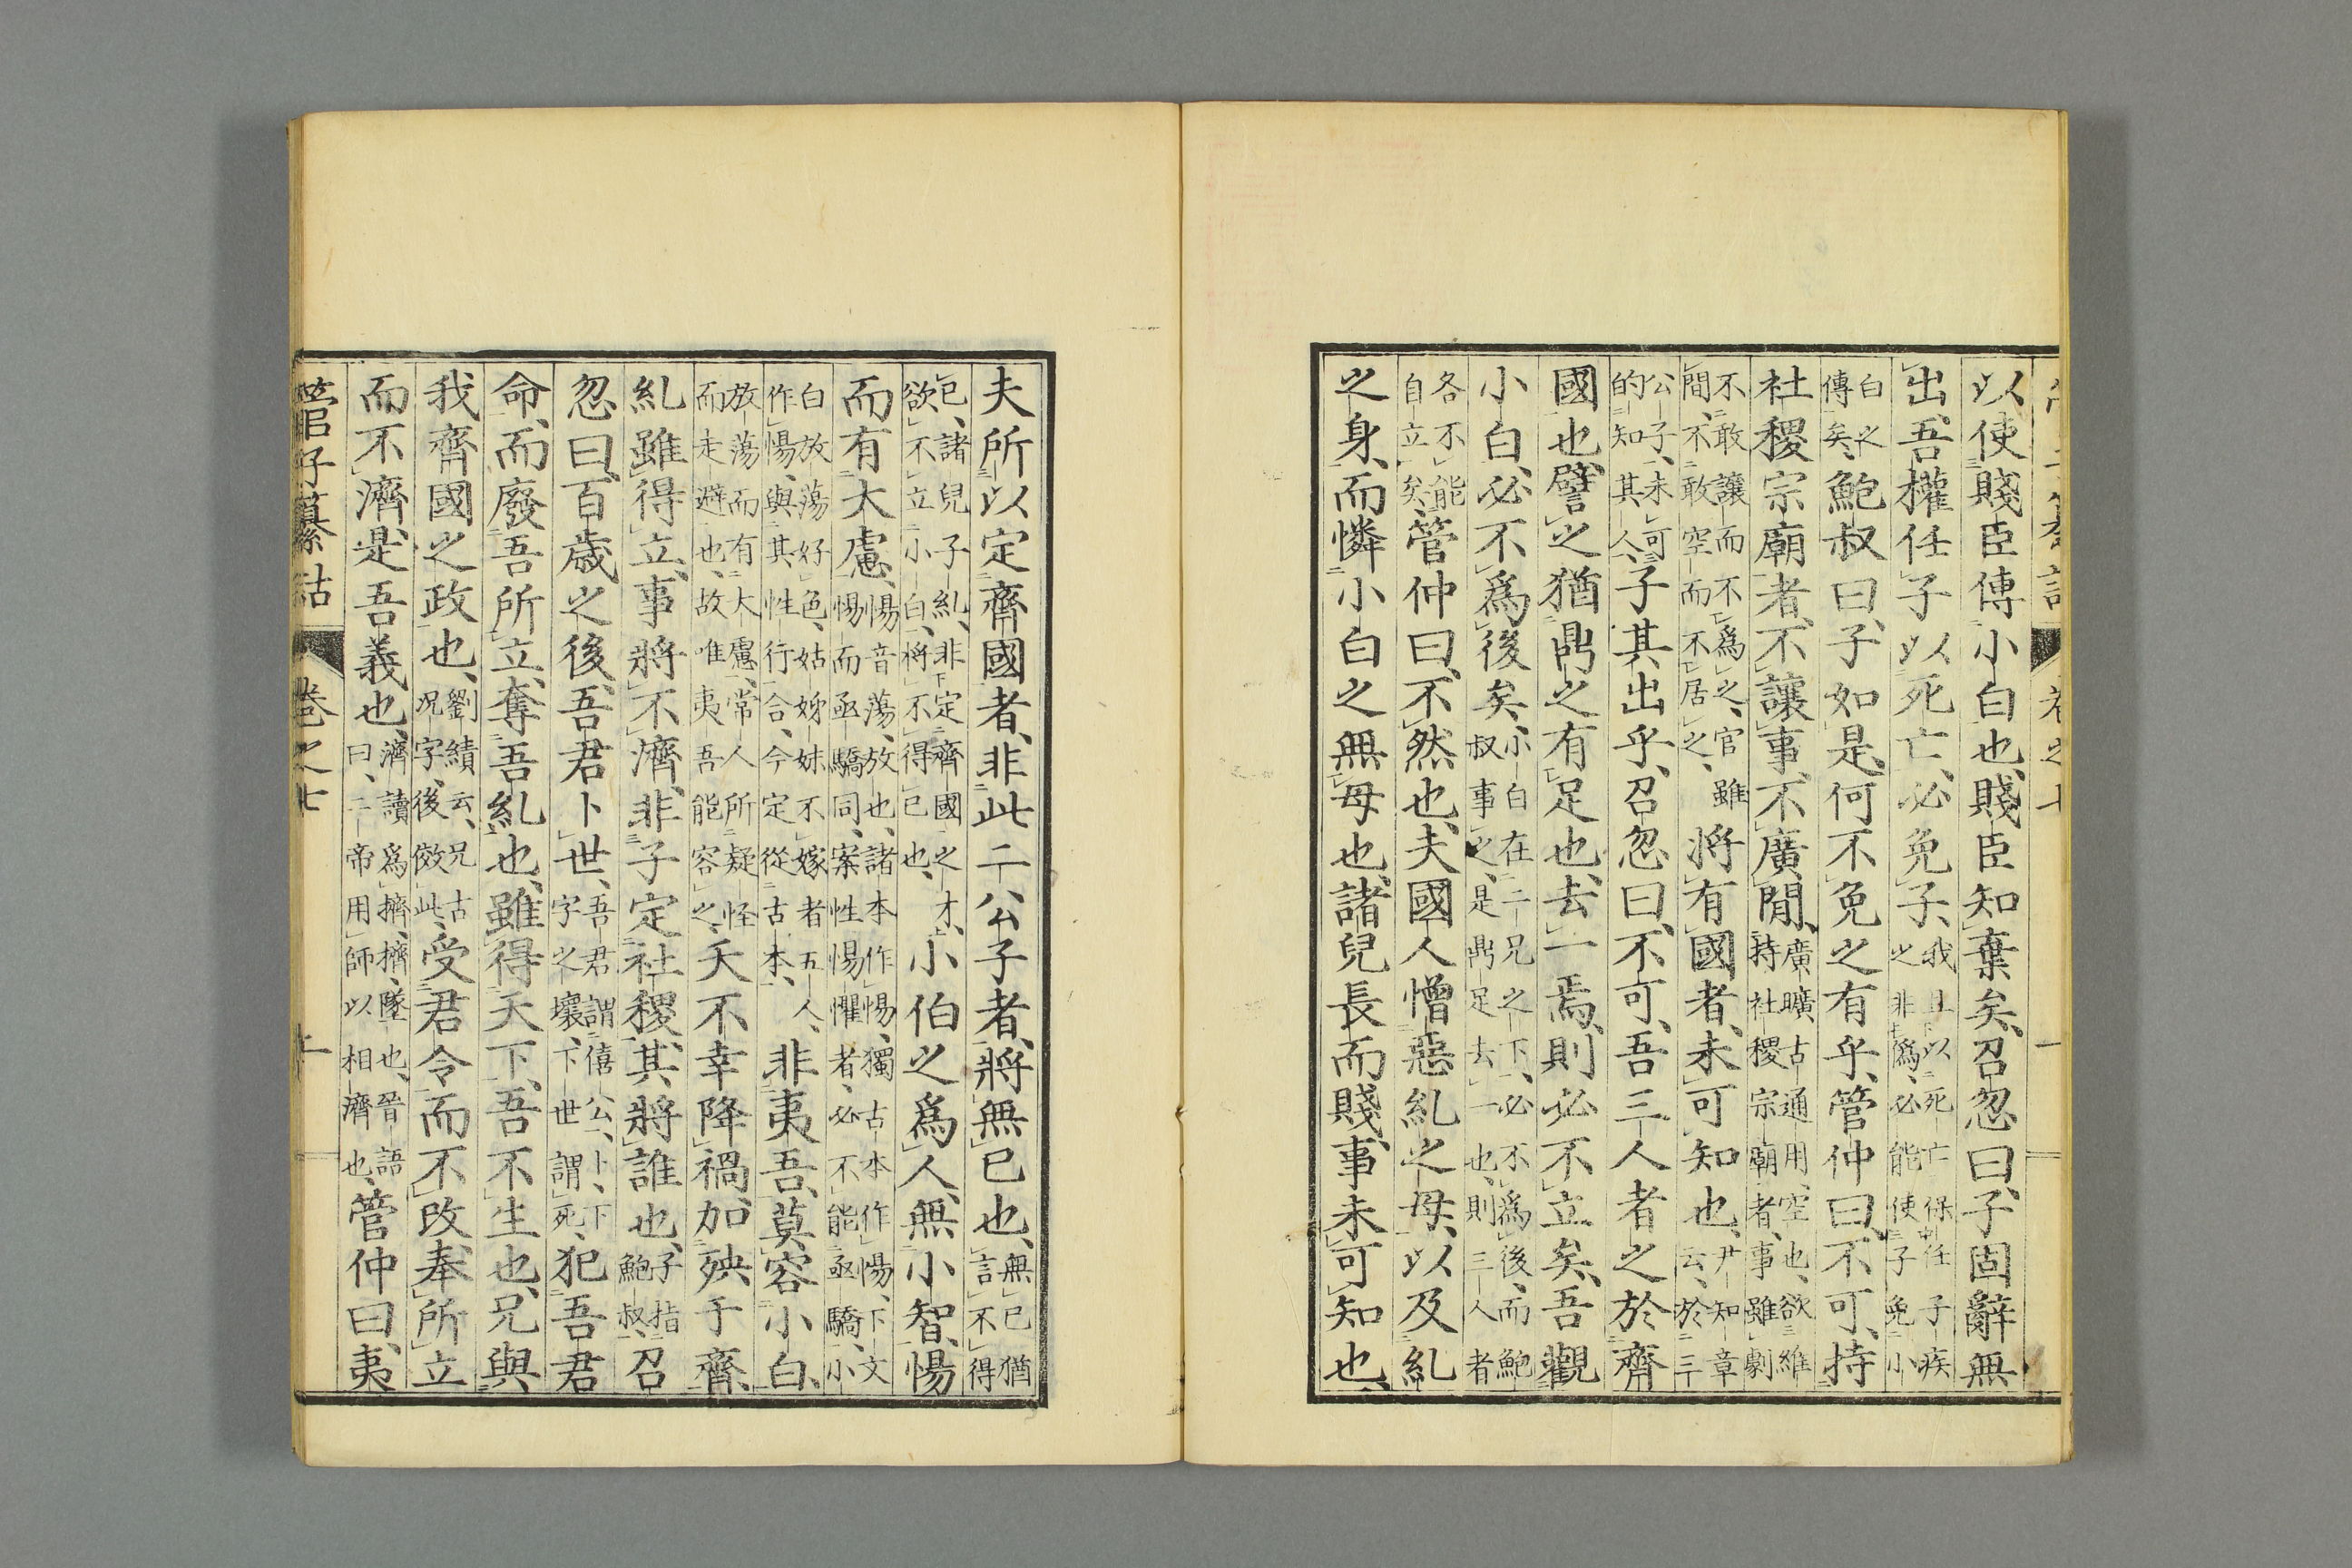 以使賤臣傳小白也、賤臣知棄矣、召忽曰、子固辭無
出、吾權任子以死亡、必免子、我且以死亡保任子疾之非爲、必能使子免小
白之傳矣、鮑叔曰、子如是、何不免之有乎、管仲曰、不可、持
社稷宗廟者、不讓事、不廣閒、廣曠古通用、空也、欲維持社稷宗廟者、事雖劇
不敢讓而不爲之、官雖間、不敢空而不居之、將有國者、未可知也、尹知章云、於三
公子、未可的知其人、子其出乎、召忽曰、不可、吾三人者之於齊
國也、譬之猶鼎之有足也、去一焉、則必不立矣、吾觀
小白、必不爲後矣、小白在二兄之下、必不爲後、而鮑叔事之、是鼎足去一也、則三人者
各不能自立矣、管仲曰、不然也、夫國人憎惡糺之母、以及糺
之身、而憐小白之無母也、諸兒長而賤、事未可知也、
夫所以定齊國者、非此二公子者、將無已也、無已猶言不得
已、諸兒子糺、非定齊國之才、欲不立小白、將不得已也、小伯之爲人、無小智、惕
而有大慮、愓音蕩、放也、諸本作惕、獨古本作愓、下文愓而亟驕同、案性惕懼者、必不能亟驕、小
白放蕩好色、姑姊妹不嫁者五人、作愓、與其性行合、今定從古本、非夷吾、莫容小白、
放蕩而有大慮、常人所疑怪而走避也、故唯夷吾能容之、天不幸降禍加殃于齊、
糺雖得立、事將不濟、非子定社稷、其將誰也、子指鮑叔、召
忽曰、百歲之後、吾君卜世、吾君謂僖公、卜、下字之壞、下世謂死、犯吾君
命、而廢吾所立、奪吾糺也、雖得天下、吾不生也、兄與
我齊國之政也、劉績云、兄古况字、後倣此、受君令而不改、奉所立
而不濟、是吾義也、濟讀爲擠、擠、墜也、晉語曰、二帝用師以相濟也、管仲曰、夷
管子纂詁 卷之七 十一